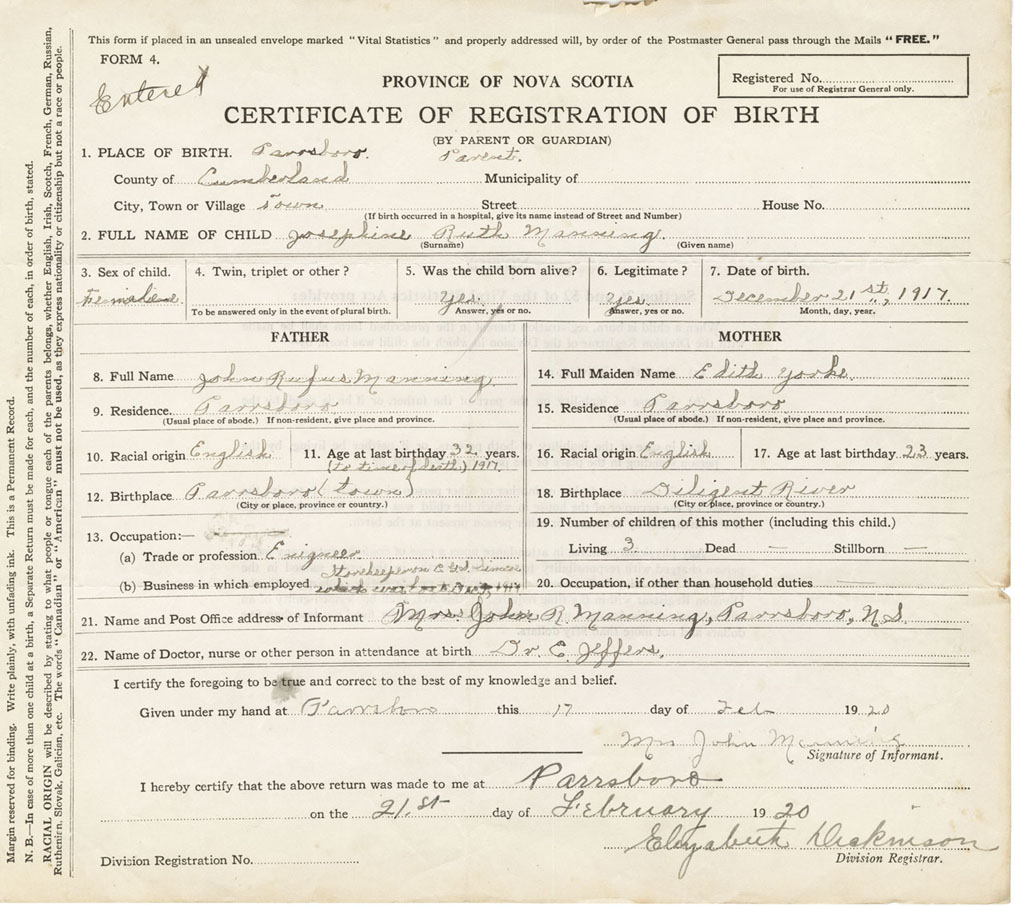 This form if placed in an unsealed envelope marked "Vital Statistics" and properly addressed will, by order of the Postmaster General pass through the Mails "FREE."
FORM 4.
Entered
PROVINCE OF NOVA SCOTIA
Registered No.
For use of Registrar General only.
CERTIFICATE OF REGISTRATION OF BIRTH
(BY PARENT OR GUARDIAN)
1. PLACE OF BIRTH. Parrsboro. Parent.
County of Cumberland Municipality of
City, Town or Village Town Street House No.
(If birth occurred in a hospital, give its name instead of Street and Number)
2. FULL NAME OF CHILD Josephine Ruth Manning.
(Surname) (Given name)
3. Sex of child. 4. Twin, triplet or other? 5. Was the child born alive? 6. Legitimate? 7. Date of birth.
Yes. Yes. December 21st, 1917.
To be answered only in the event of plural birth. Answer, yes or no. Answer, yes or no. Month, day, year.
FATHER
8. Full Name John Rufus Manning
9. Residence. Parrsboro
(Usual place of abode.) If non-resident, give place and province.
10. Racial origin English 11. Age at last birthday 32 years.
(to time of death) 1917.
12. Birthplace Parrsboro (town)
(City or place, province or country.)
13. Occupation:—
(a) Trade or profession Enigneer
Storekeeper on C.G.S.
(b) Business in which employed
MOTHER
14. Full Maiden Name Edith Yorke
15. Residence Parrsboro
(Usual place of abode.) If non-resident, give place and province.
16. Racial origin English 17. Age at last birthday 23 years.
18. Birthplace Diligent River
(City or place, province or country.)
19. Number of children of this mother (including this child.)
Living 3 Dead — Stillborn —
20. Occupation, if other than household duties
21. Name and Post Office address of Informant Mrs. John R. Manning, Parrsboro, N.S.
22. Name of Doctor, nurse or other person in attendance at birth Dr. E. Jeffers.
I certify the foregoing to be true and correct to the best of my knowledge and belief.
Given under my hand at Parrsboro this 17 day of Feb 1920
Mrs John Manning
Signature of Informant.
I hereby certify that the above return was made to me at Parrsboro
on the 21.st day of February 1920
Elizabeth Dickinson
Division Registrar.
Division Registration No.
Margin reserved for binding. Write plainly, with unfading ink. This is a Permanent Record.
N. B.—In case of more than one child at a birth, a Separate Return must be made for each, and the number of each, in order of birth, stated.
RACIAL ORIGIN will be described by stating to what people or tongue each of the parents belongs, whether English, Irish, Scotch, French, German, Russian,
Ruthenirn, Slovak, Galician, etc. The words "Canadian" or "American" must not be used, as they express nationality or citizenship but not a race or people.